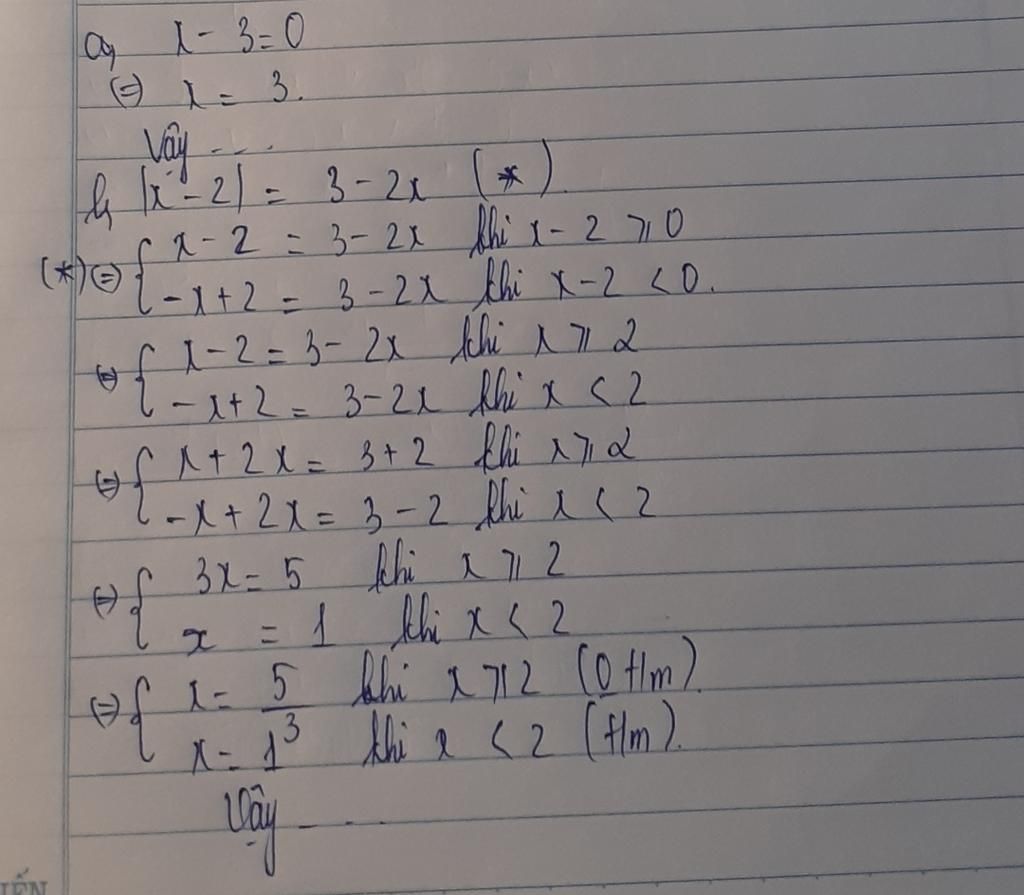 a, x - 3 = 0
(=) x = 3.
Vậy ....
b, |x - 2| = 3 - 2x (*)
(*) (=) { x - 2 = 3 - 2x khi x - 2 ⩾ 0
-x + 2 = 3 - 2x khi x - 2 < 0.
(=) { x - 2 = 3 - 2x khi x ⩾ 2
-x + 2 = 3 - 2x khi x < 2
(=) { x + 2x = 3 + 2 khi x ⩾ 2
-x + 2x = 3 - 2 khi x < 2
(=) { 3x = 5 khi x ⩾ 2
x = 1 khi x < 2
(=) { x = 5/3 khi x ⩾ 2 (0 t/m).
x = 1 khi x < 2 (t/m).
Vậy ....
IẾN